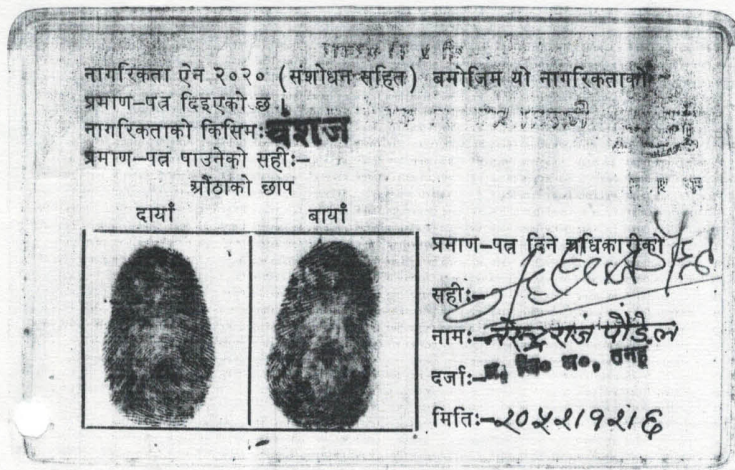 नागरिकता ऐन २०२० (संशोधन सहित) बमोजिम यो नागरिकताको
प्रमाण-पत्र दिइएको छ।
नागरिकताको किसिमः वंशज
प्रमाण-पत्र पाउनेको सहीः-
औंठाको छाप
दायाँ बायाँ
प्रमाण-पत्र दिने अधिकारीको
सहीः-
नामः- नरेन्द्रराज पौडेल
दर्जाः- प्र. जि० अ०, तनहुँ
मितिः- २०५२।१२।६